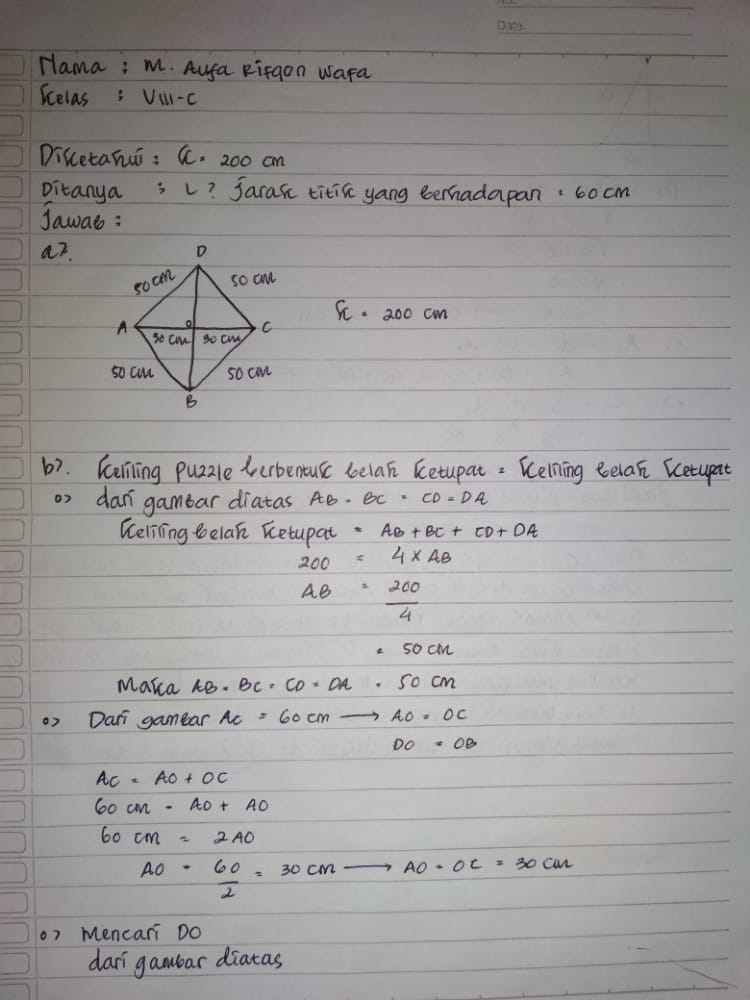 No.
Date.
Nama : M. Aufa Rifqon Wafa
Kelas : VIII-C
Diketahui : K = 200 cm
Ditanya : L ? Jarak titik yang berhadapan = 60 cm
Jawab :
a).
D
50 cm 50 cm
A O C K = 200 cm
30 cm 30 cm
50 cm 50 cm
B
b). Keliling Puzzle berbentuk belah ketupat = Keliling belah ketupat
o> dari gambar diatas AB = BC = CD = DA
Keliling belah ketupat = AB + BC + CD + DA
200 = 4 × AB
AB = 200
4
= 50 cm
Maka AB = BC = CD = DA = 50 cm
o> Dari gambar AC = 60 cm → AO = OC
DO = OB
AC = AO + OC
60 cm = AO + AO
60 cm = 2AO
AO = 60/2 = 30 cm → AO = OC = 30 cm
o> Mencari DO
dari gambar diatas